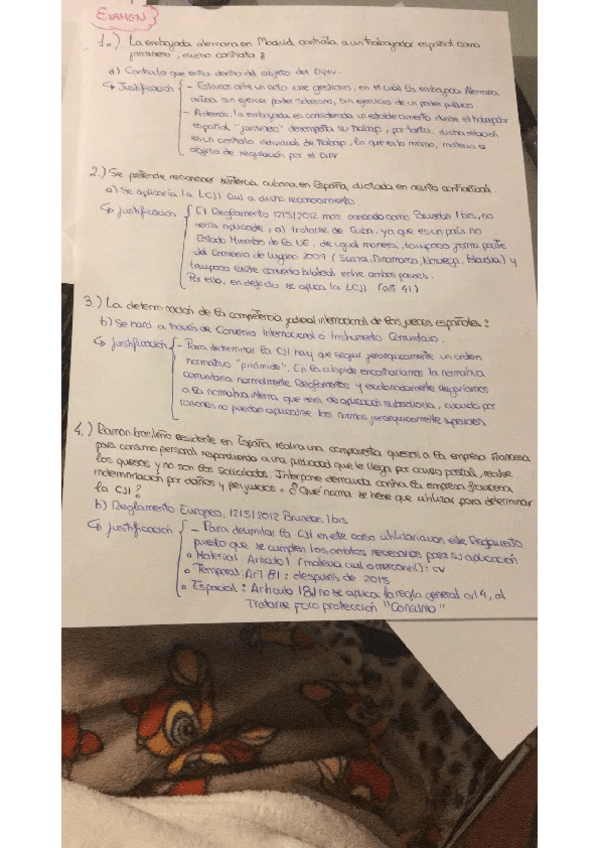 EXAMEN
1.) La embajada alemana en Madrid, contrata a un trabajador español como
jardinero, dicho contrato:
a) Contrato que entra dentro del objeto del DIPr.
Justificación - Estamos ante un acto iure gestionis, en el cual la embajada Alemana
actúa sin ejercer poder soberano, sin ejercicio de un poder público
- Además, la embajada es considerada un establecimiento donde el trabajador
español "jardinero" desempeña su trabajo, por tanto, dicha relación
es un contrato individual de trabajo, lo que es lo mismo, materia u
objeto de regulación por el DIPr
2.) Se pretende reconocer sentencia cubana en España, dictada en asunto contractual.
a) Se aplicaría la LCJI a dicho reconocimiento.
Justificación El Reglamento 1215/2012 más conocido como Bruselas I bis, no
sería aplicable, al tratarse de Cuba, ya que es un país no
Estado Miembro de la UE, de igual manera, tampoco forma parte
del Convenio de Lugano 2007 (Suiza, Dinamarca, Noruega, Islandia) y
tampoco existe convenio bilateral entre ambos países.
Por ello, en defecto se aplica la LCJI (art 41)
3.) La determinación de la competencia judicial internacional de los jueces españoles:
b) Se hará a través de Convenio Internacional o Instrumento Comunitario.
Justificación - Para determinar la CJI hay que seguir jerárquicamente un orden
normativo "pirámide". En la cúspide encontraríamos la normativa
comunitaria normalmente Reglamentos y escalonadamente llegaríamos
a la normativa interna, que será de aplicación subsidiaria, cuando por
razones no puedan aplicarse las normas jerárquicamente superiores
4.) Ramon brasileño residente en España, realiza una compraventa quesos a la empresa Francesa
para consumo personal respondiendo a una publicidad que le llega por correo postal, recibe
los quesos y no son los solicitados. Interpone demanda contra la empresa francesa
indemnización por daños y perjuicios. ¿Qué norma se tiene que utilizar para determinar
la CJI?
b) Reglamento Europeo, 1215/2012 Bruselas I bis
Justificación - Para delimitar la CJI en este caso utilizaríamos este Reglamento
puesto que se cumplen los ámbitos necesarios para su aplicación
Material: Artículo 1 (materia civil o mercantil): CV
Temporal: Art 81: después de 2015
Espacial: Artículo 18.1 no se aplica la regla general art 4, al
Tratarse foro protección "Consumo"